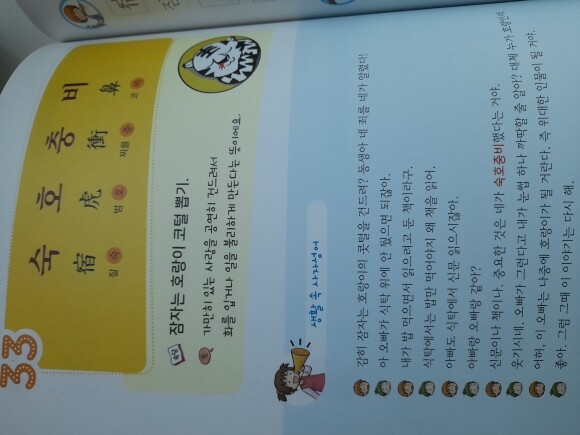 33
숙 호 충 비
宿 虎 衝 鼻
잘 숙 범 호 찌를 충 코 비
속담 잠자는 호랑이 코털 뽑기.
가만히 있는 사람을 공연히 건드려서
화를 입거나 일을 불리하게 만든다는 뜻이에요.
생활 속 사자성어
감히 잠자는 호랑이의 콧털을 건드려? 동생아 네 죄를 네가 알렸다!
아 오빠가 식탁 위에 안 뒀으면 되잖아.
내가 밥 먹으면서 읽으려고 둔 책이라구.
식탁에서는 밥만 먹어야지 왜 책을 읽어.
아빠도 식탁에서 신문 읽으시잖아.
아빠랑 오빠랑 같아?
신문이나 책이나. 중요한 것은 네가 숙호충비했다는 거야.
웃기시네, 오빠가 그런다고 내가 눈썹 하나 까딱할 줄 알아? 대체 누가 호랑인데
어허, 이 오빠는 나중에 호랑이가 될 거란다. 즉 위대한 인물이 될 거야.
좋아. 그럼 그때 이 이야기는 다시 해.